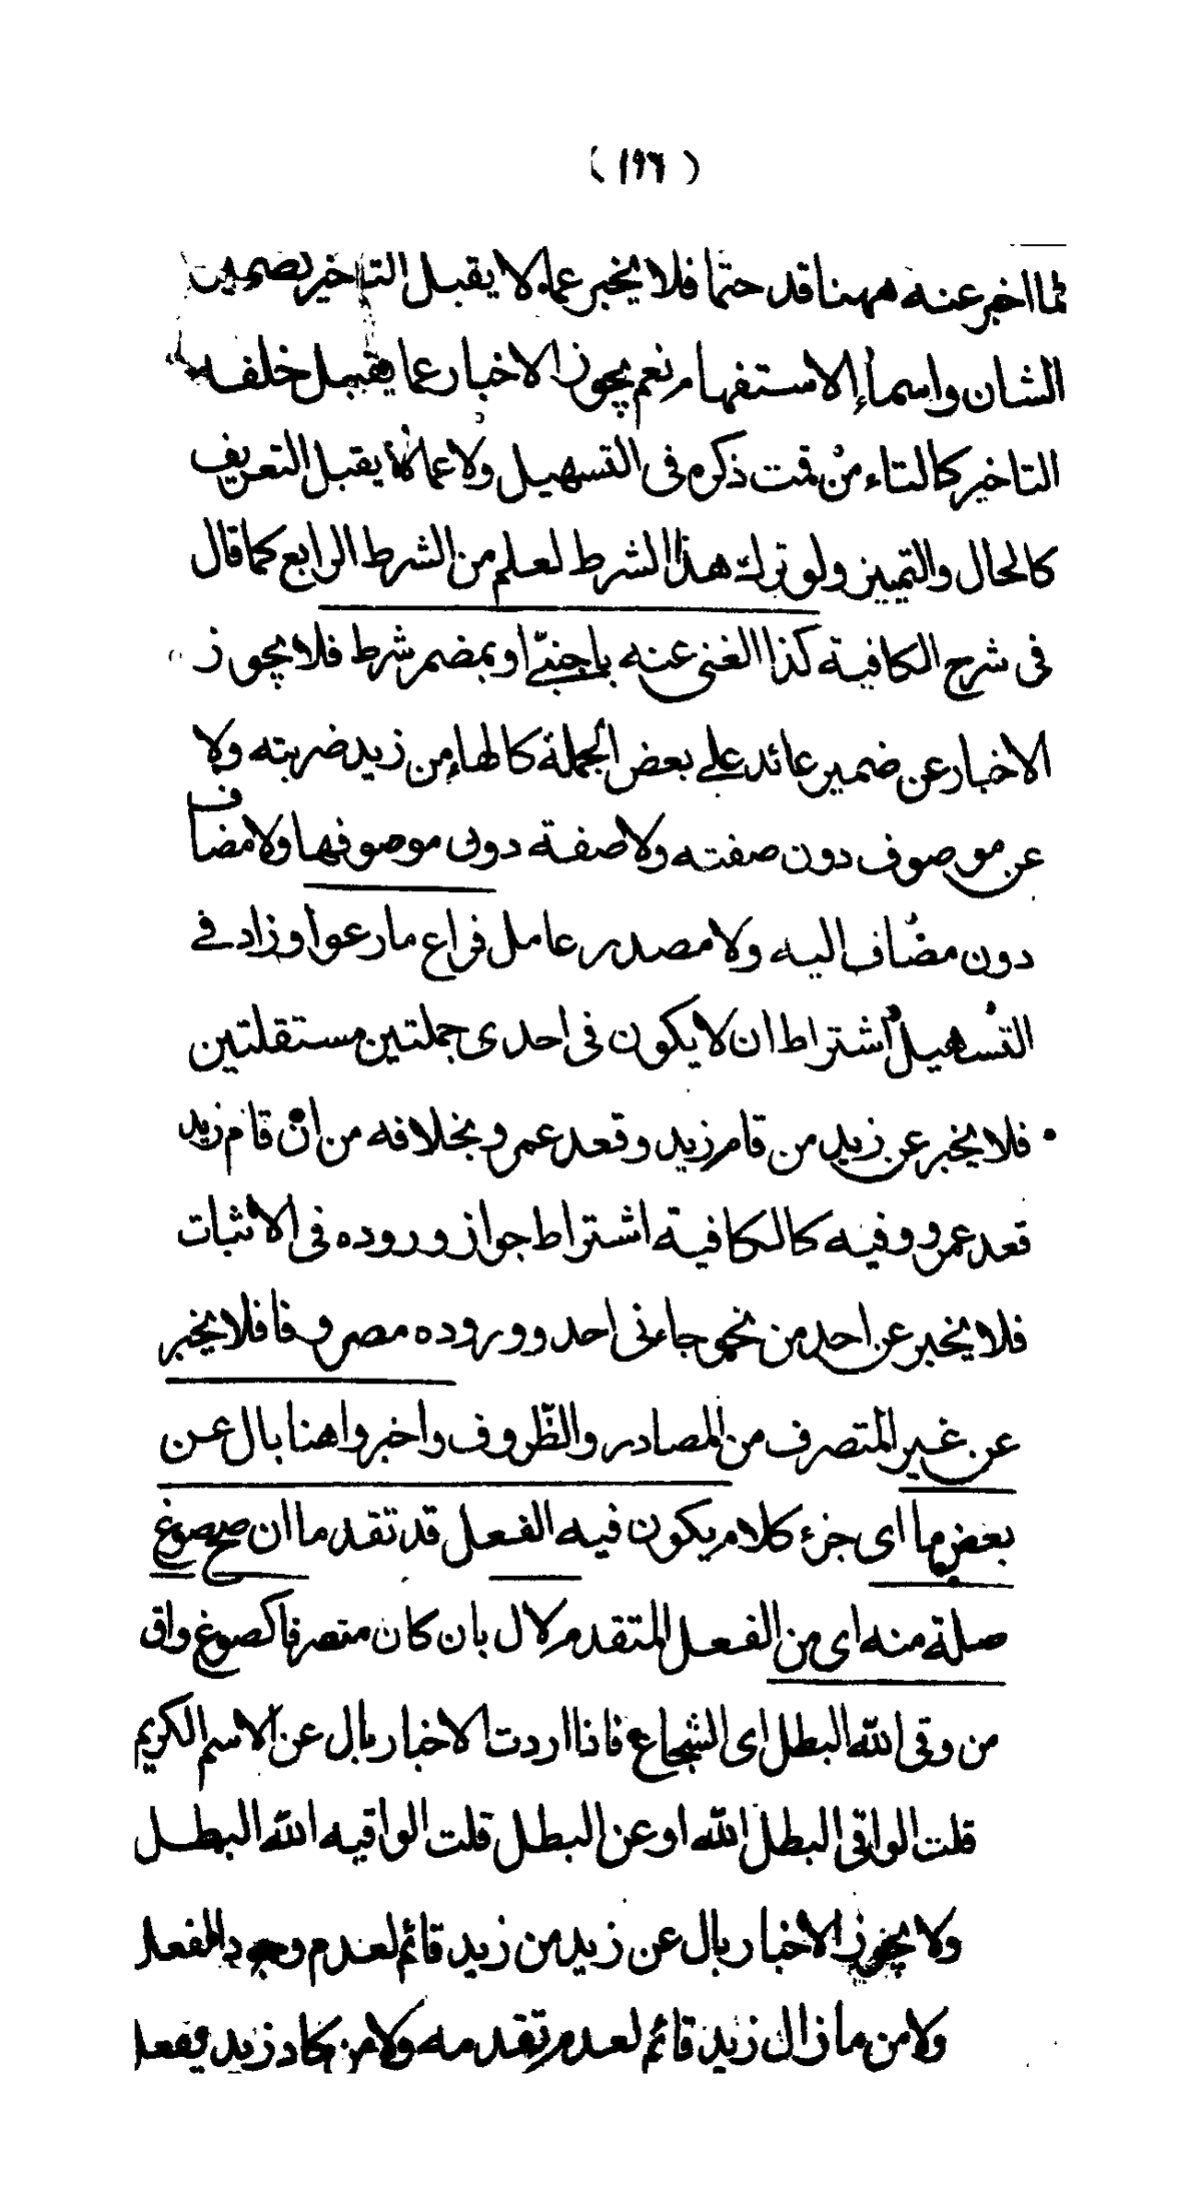 ( ١٩٦ )
لما اخبر عنه ههنا قد حتما فلا يخبر عما لا يقبل التاخير كضمير
الشان واسماء الاستفهام نعم يجوز الاخبار عما يقبل خلفه
التاخير كالتاء من قمت ذكره فى التسهيل ولا عما لا يقبل التعريف
كالحال والتمييز ولو ترك هذا الشرط لعلم من الشرط الرابع كما قال
فى شرح الكافية كذا الغنى عنه باجنبى او بمضمر شرط فلا يجوز
الاخبار عن ضمير عائد على بعض الجملة كالهاء من زيد ضربته ولا
عن موصوف دون صفته ولا صفة دون موصوفها ولا مضاف
دون مضاف اليه ولا مصدر عامل فراع ما رعوا وزاد فى
التسهيل اشتراط ان لا يكون فى احدى جملتين مستقلتين
فلا يخبر عن زيد من قام زيد وقعد عمرو بخلافه من ان قام زيد
قعد عمرو وفيه كالكافية اشتراط جواز وروده فى الاثبات
فلا يخبر عن احد من نحو ما جاءنى احد ووروده مصروفا فلا يخبر
عن غير المتصرف من المصادر والظروف واخبروا هنا بال عن
بعض ما اى جزء كلام يكون فيه الفعل قد تقدما ان صح صوغ
صلة منه اى من الفعل المتقدم لال بان كان متصرفا كصوغ واق
من وقى الله البطل اى الشجاع فاذا اردت الاخبار بال عن الاسم الكريم
قلت الواقى البطل الله او عن البطل قلت الواقيه الله البطل
ولا يجوز الاخبار بال عن زيد من زيد قائم لعدم وجود الفعل
ولا من ما زال زيد قائم لعدم تقدمه ولا من كاد زيد يفعل